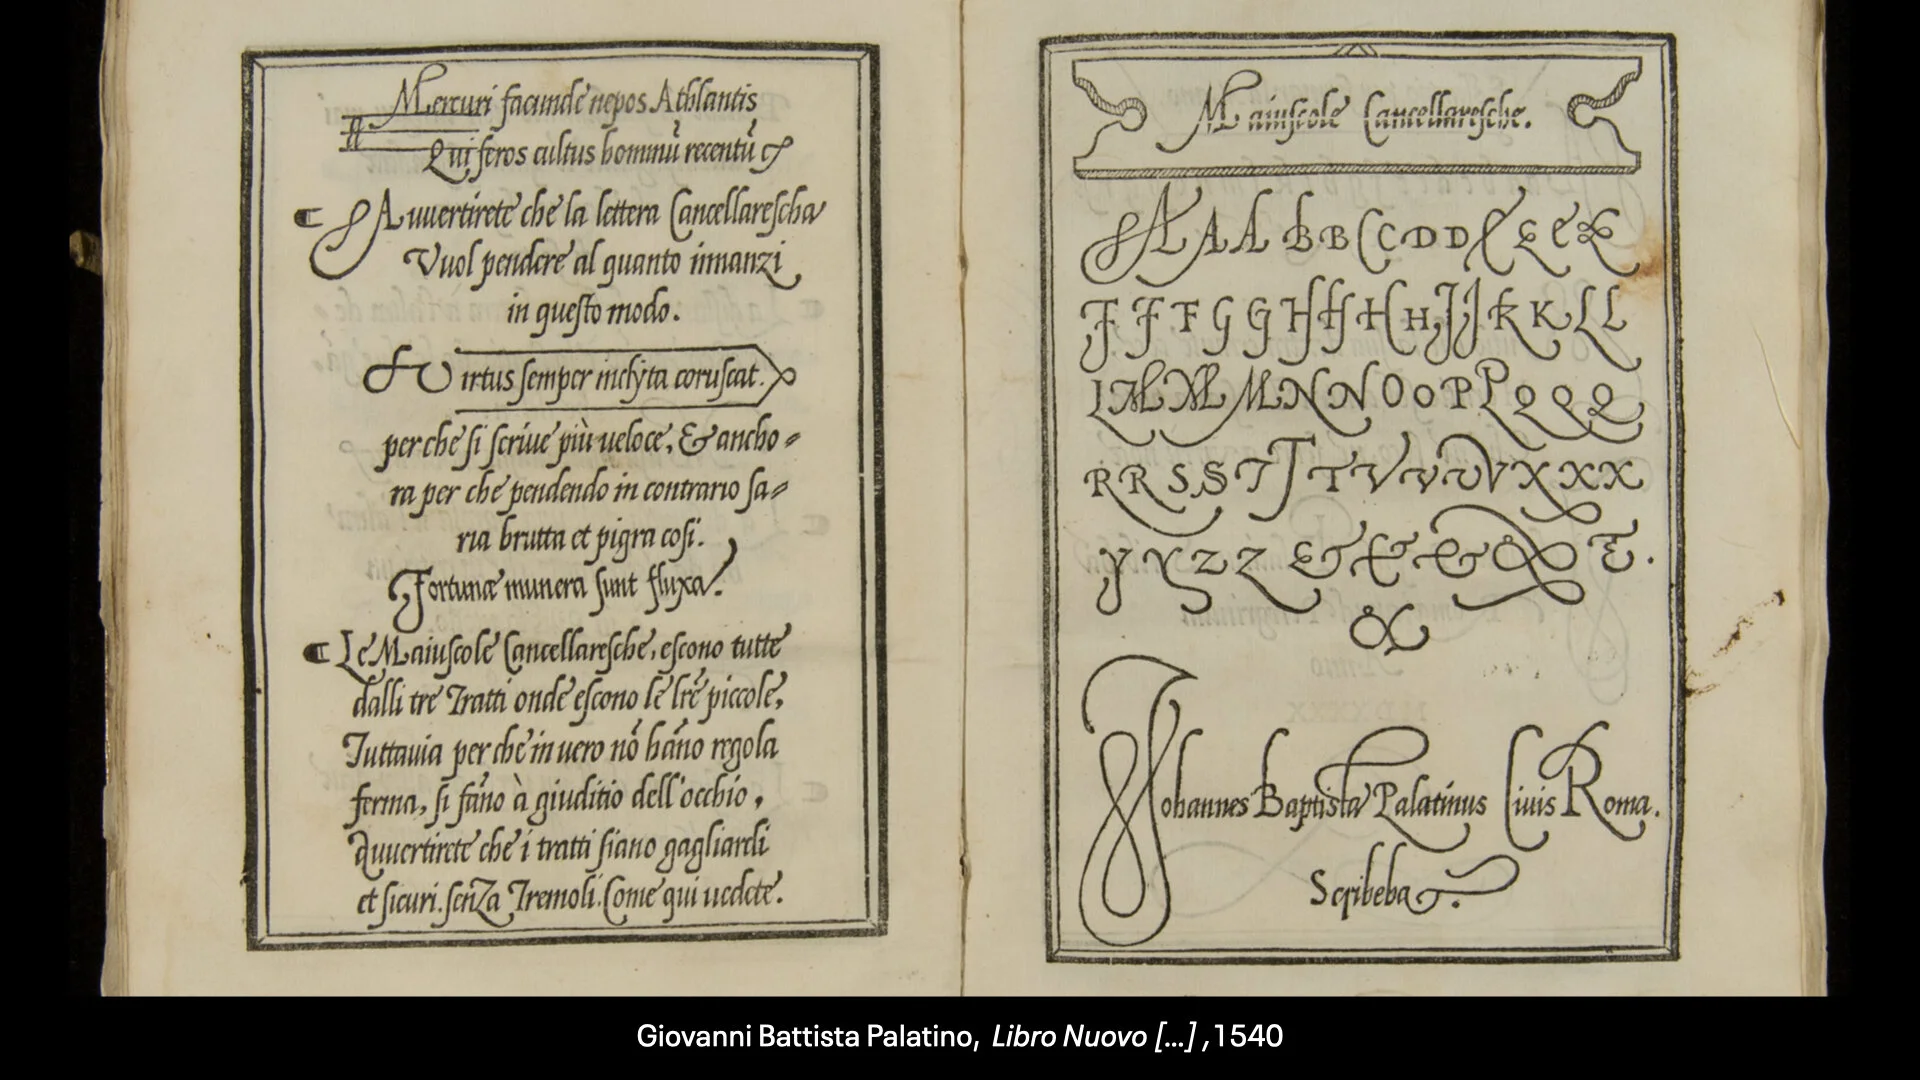 Mercuri facunde nepos Athlantis
Qui feros cultus hominū recentū &
¶ Auuertirete che la lettera Cancellarescha
Vuol pendere al quanto innanzi
in questo modo.
Virtus semper inclyta coruscat.
perche si scriue più ueloce, & ancho⸗
ra per che pendendo in contrario sa⸗
ria brutta et pigra cosi.
Fortunæ munera sunt fluxa.
¶ Le Maiuscole Cancellaresche, escono tutte
dalli tre Tratti onde escono le lr̄e piccole,
Tuttauia perche in uero nō hāno regola
ferma, si fāno à giuditio dell'occhio,
Auuertirete che i tratti siano gagliardi
et sicuri. senza Tremoli. Come qui uedete.
Maiuscole Cancellaresche.
A A A B B C C D D E E E E
F F F G G H H H H I J K K L L
L M M M N N O O P P Q Q Q
R R S S T T T V V V V X X X
Y Y Z Z & & & & &.
&
Johannes Baptista Palatinus Ciuis Roma.
Scribeba.
Giovanni Battista Palatino, Libro Nuovo [...] ,1540